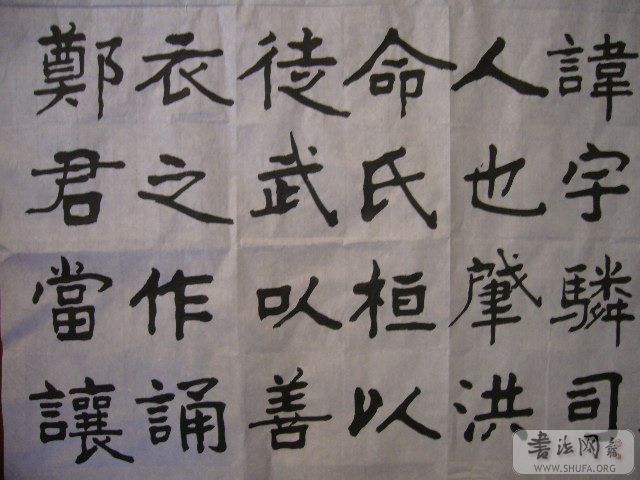 諱字驎司
人也肇洪
命氏桓以
徒武以善
衣之作誦
鄭君當讓
书法网
WWW.SHUFA.ORG